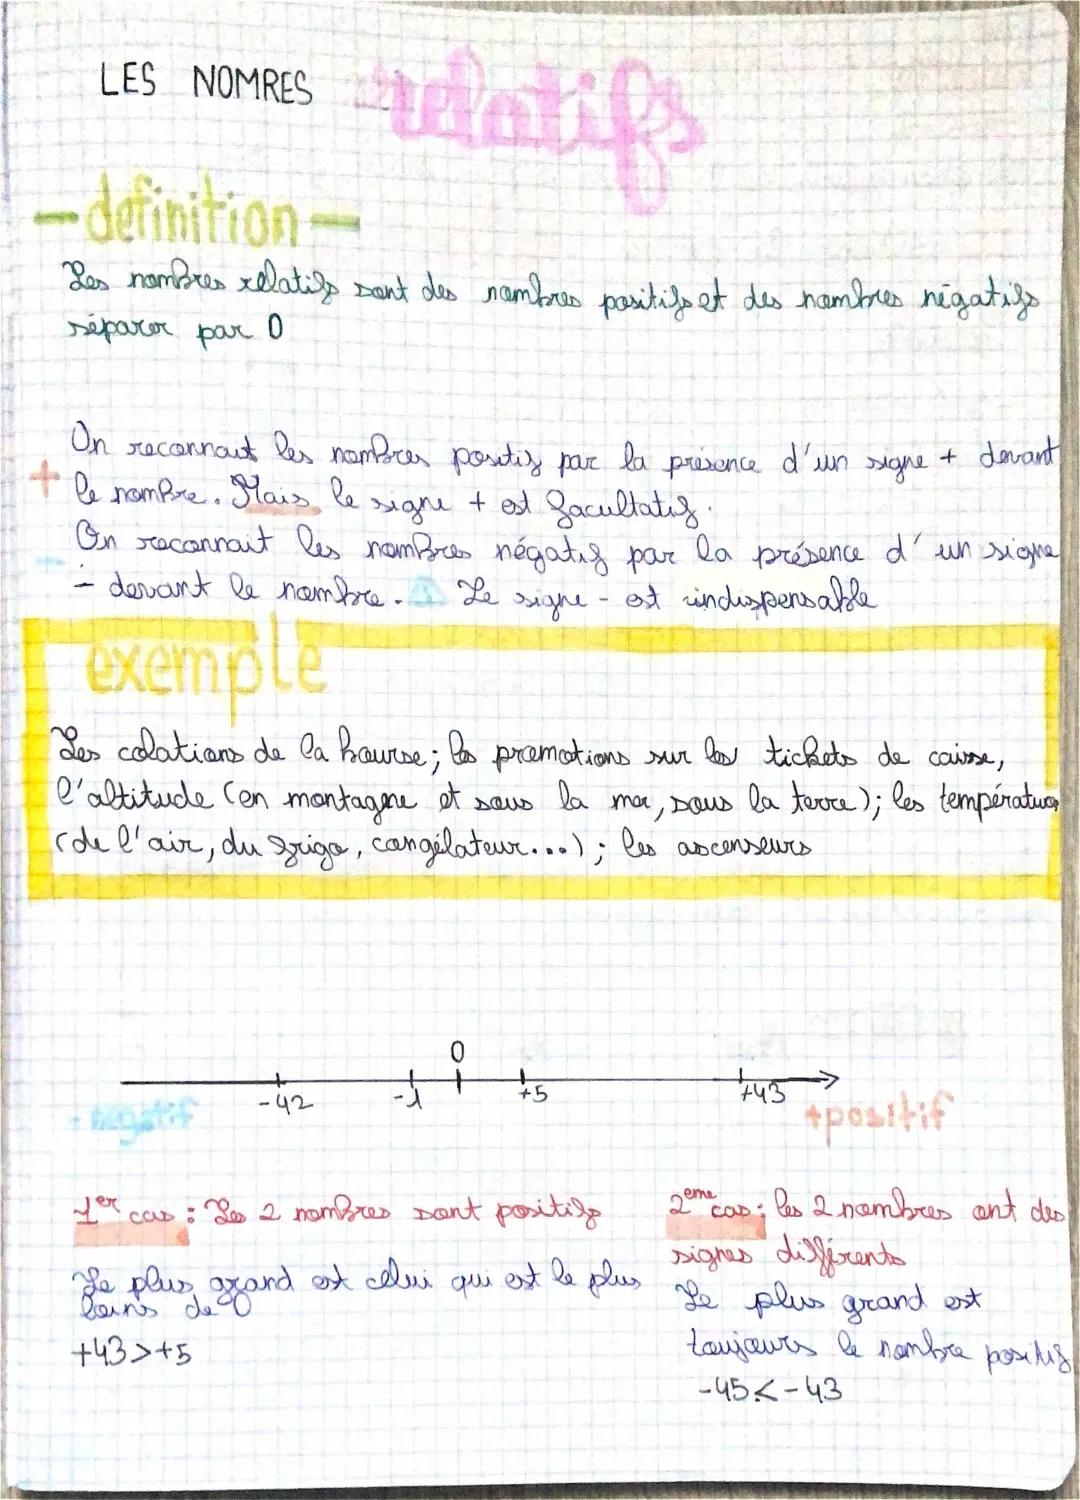 LES NOMRES relatifs
-definition-
Les nombres relatifs sont des nombres positifs et des nombres négatifs
séparer par 0
On reconnaut les nombres positif par la présence d'un signe + devant
+ le nombre. Mais le signe + est facultatif.
On reconnait les nombres négatif par la présence d'un signe
- - devant le nombre. Le signe - est indispensable
exemple
Les colations de la bourse; les promotions sur les tickets de caisse,
l'altitude (en montagne et sous la mer, sous la terre); les températures
(de l'air, du frigo, congélateur...); les ascenseurs
0
-42 -1 +5 +43
- negatif +positif
1er cas : Les 2 nombres sont positifs
Le plus grand est celui qui est le plus
loins de 0
+43>+5
2eme cas : les 2 nombres ont des
signes différents
Le plus grand est
toujours le nombre positif
-45<-43